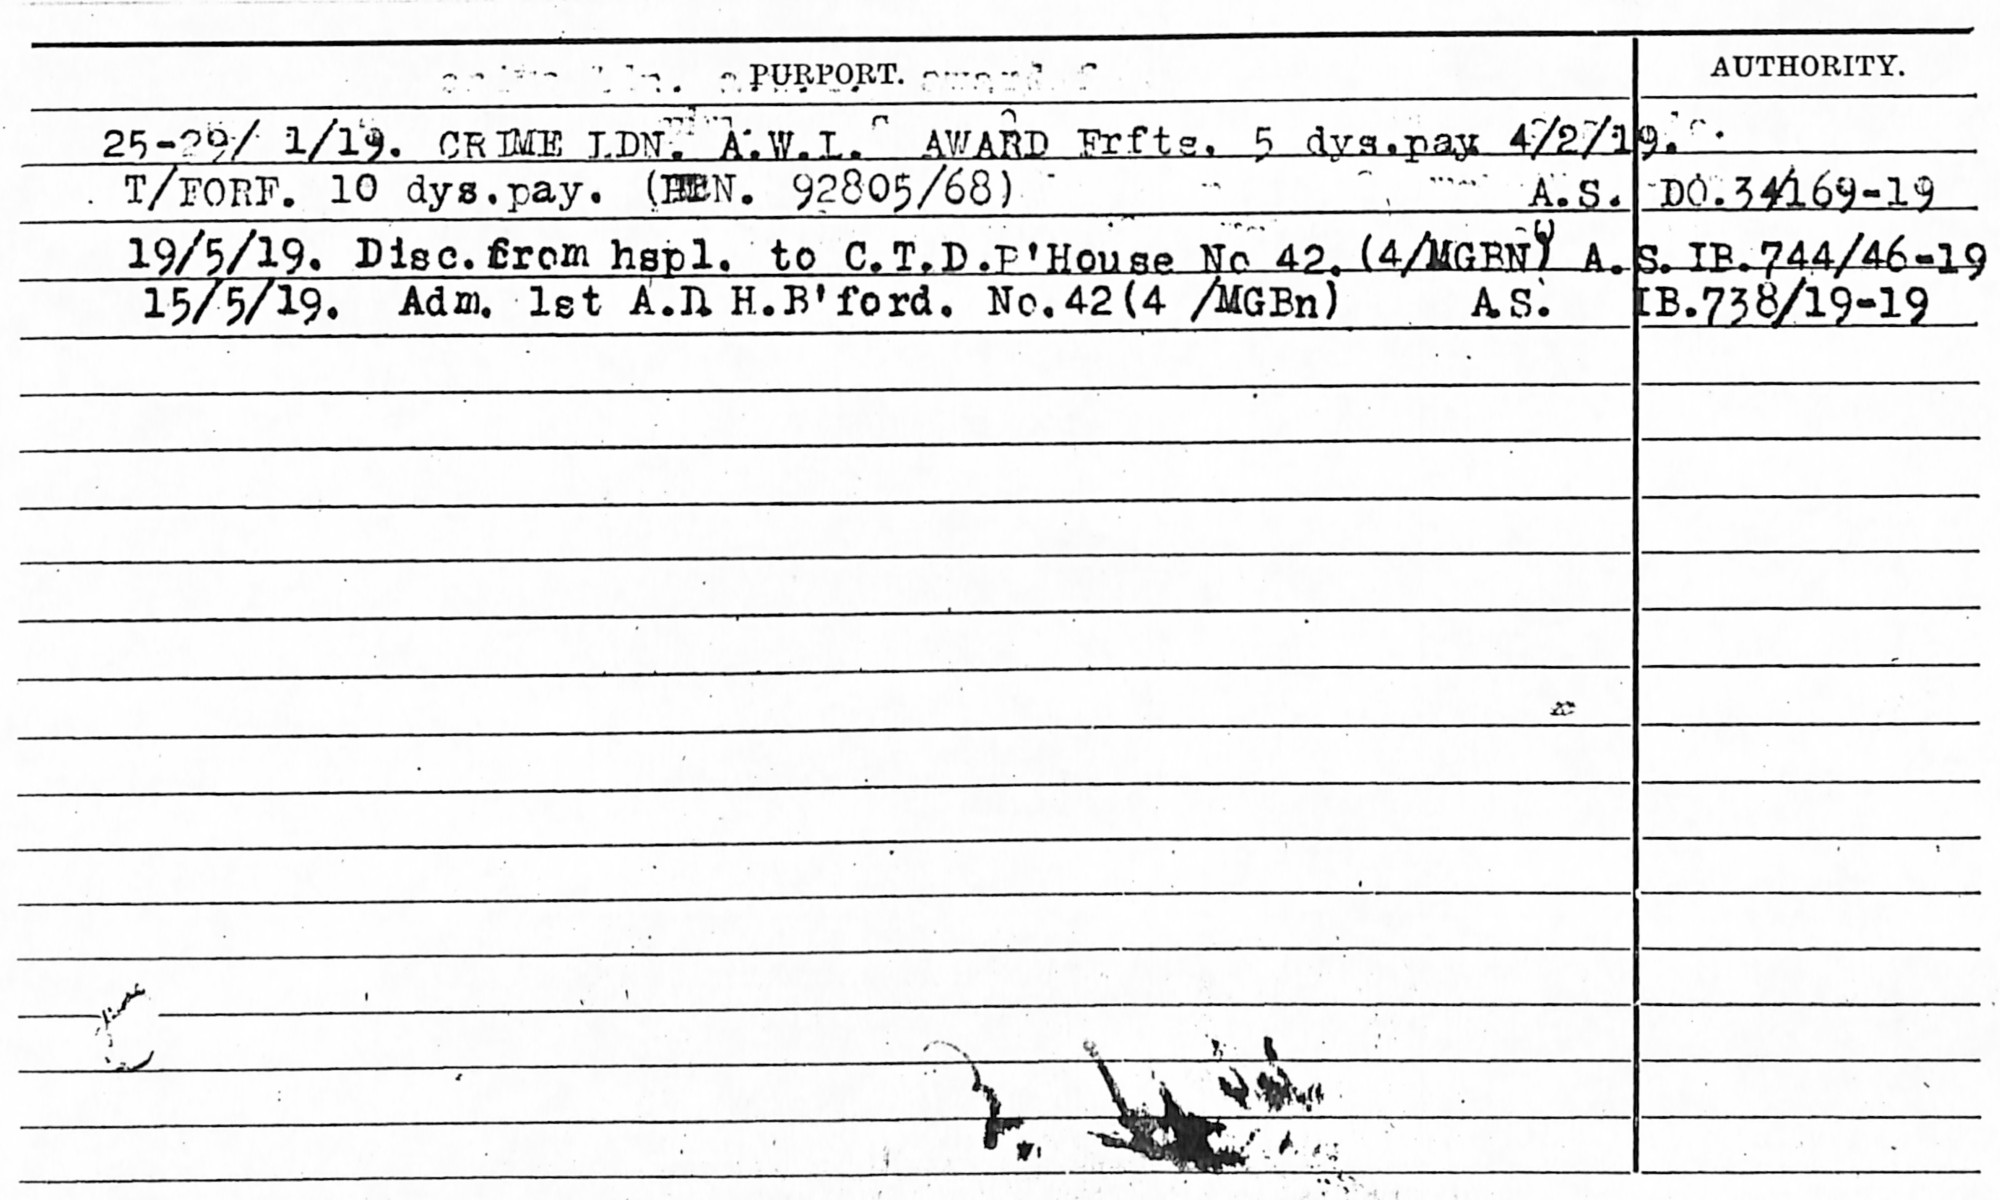 PURPORT. AUTHORITY.
25-29/ 1/19. CRIME LDN. A.W.L. AWARD Frfts. 5 dys.pay 4/2/19.
T/FORF. 10 dys.pay. ( 92805/68) A.S. DO.34/169-19
19/5/19. Disc.from hspl. to C.T.D.P'House No 42. (4/MGBN) A.S. IB.744/46-19
15/5/19. Adm. 1st A.D H.B'ford. No.42(4 /MGBn) A.S. IB.738/19-19